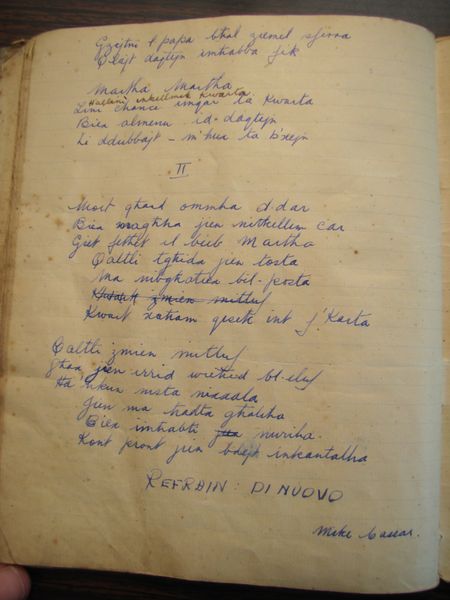 Gżejtni l papa bħal ziemel sfirra
Qlajt daqtejn imħabba fik
Martha Martha
Ħallini inkellmek kwarta
Lini chance imqar ta kwarta
Biex almenu id-daqtejn
Li ddubbajt - m'hux ta b'xejn
II
Mort għand ommha d dar
Biex magħha jien nitkellem ċar
Ġiet fetħet il bieb Martha
Qaltli tgħida jien tosta
Ma nibgħatiex bil-posta
zmien mitluf
Kwart xatiam qisek int f' Karta
Qaltli żmien mitluf
jien irrid wieħed bl-eluf
Ħa nkun nista
Jien ma ħadta għaliha
Biex imħabti nuriha.
Kont pront jien bdejt inkantalha
REFRAIN: DI NUOVO
Mike Cassar.